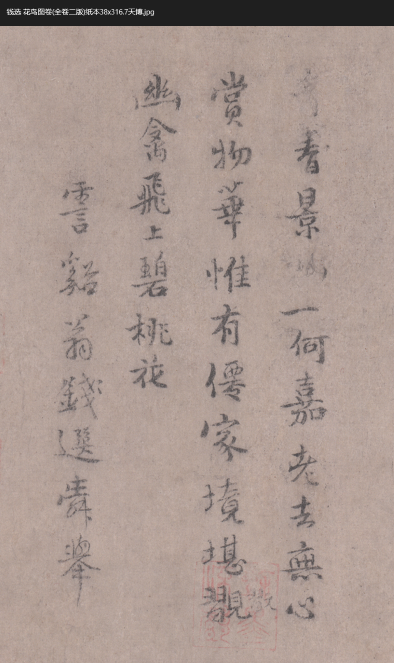 钱选 花鸟图卷(全卷二版)纸本38x316.7天博.jpg
春景一何嘉老去無心
賞物華惟有僊家境堪翫
幽禽飛上碧桃花
霅谿翁錢選舜舉